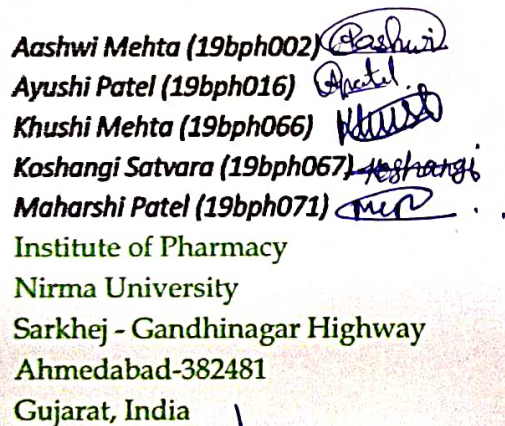 Aashwi Mehta (19bph002) Aashwi
Ayushi Patel (19bph016) Apatel.
Khushi Mehta (19bph066) Khushi
Koshangi Satvara (19bph067) Koshangi
Maharshi Patel (19bph071)
Institute of Pharmacy
Nirma University
Sarkhej - Gandhinagar Highway
Ahmedabad-382481
Gujarat, India